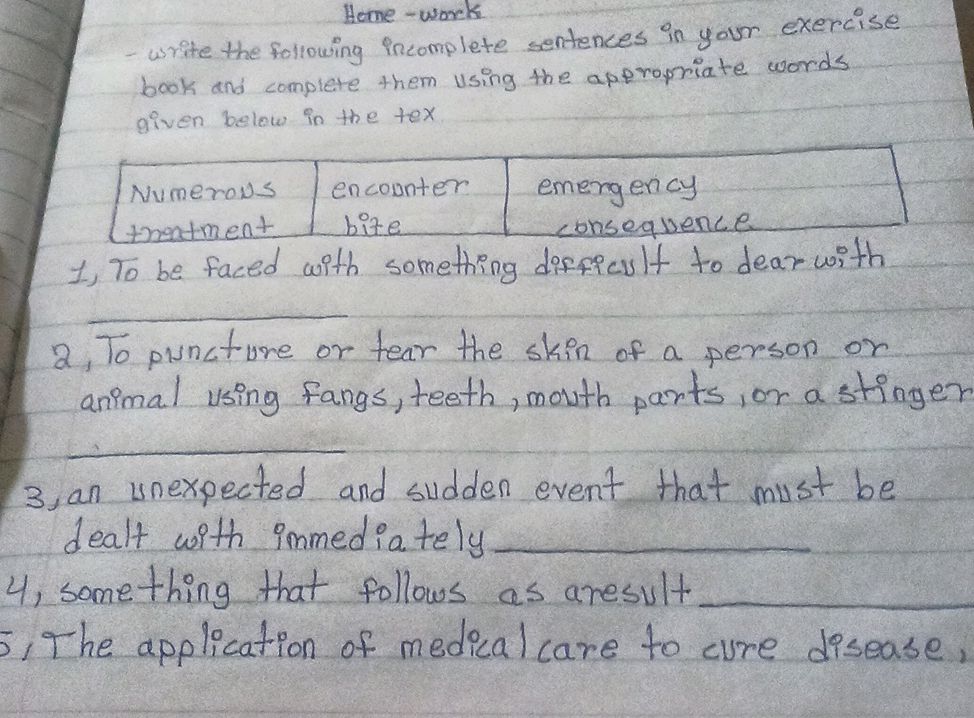 Home-work
- write the following incomplete sentences in your exercise
book and complete them using the appropriate words
given below in the tex
Numerous encounter emergency
treatment bite consequence
1, To be faced with something difficult to dear with
2, To puncture or tear the skin of a person or
animal using fangs, teeth, mouth parts, or a stinger
3, an unexpected and sudden event that must be
dealt with immediately
4, something that follows as aresult
5, The application of medical care to cure disease,